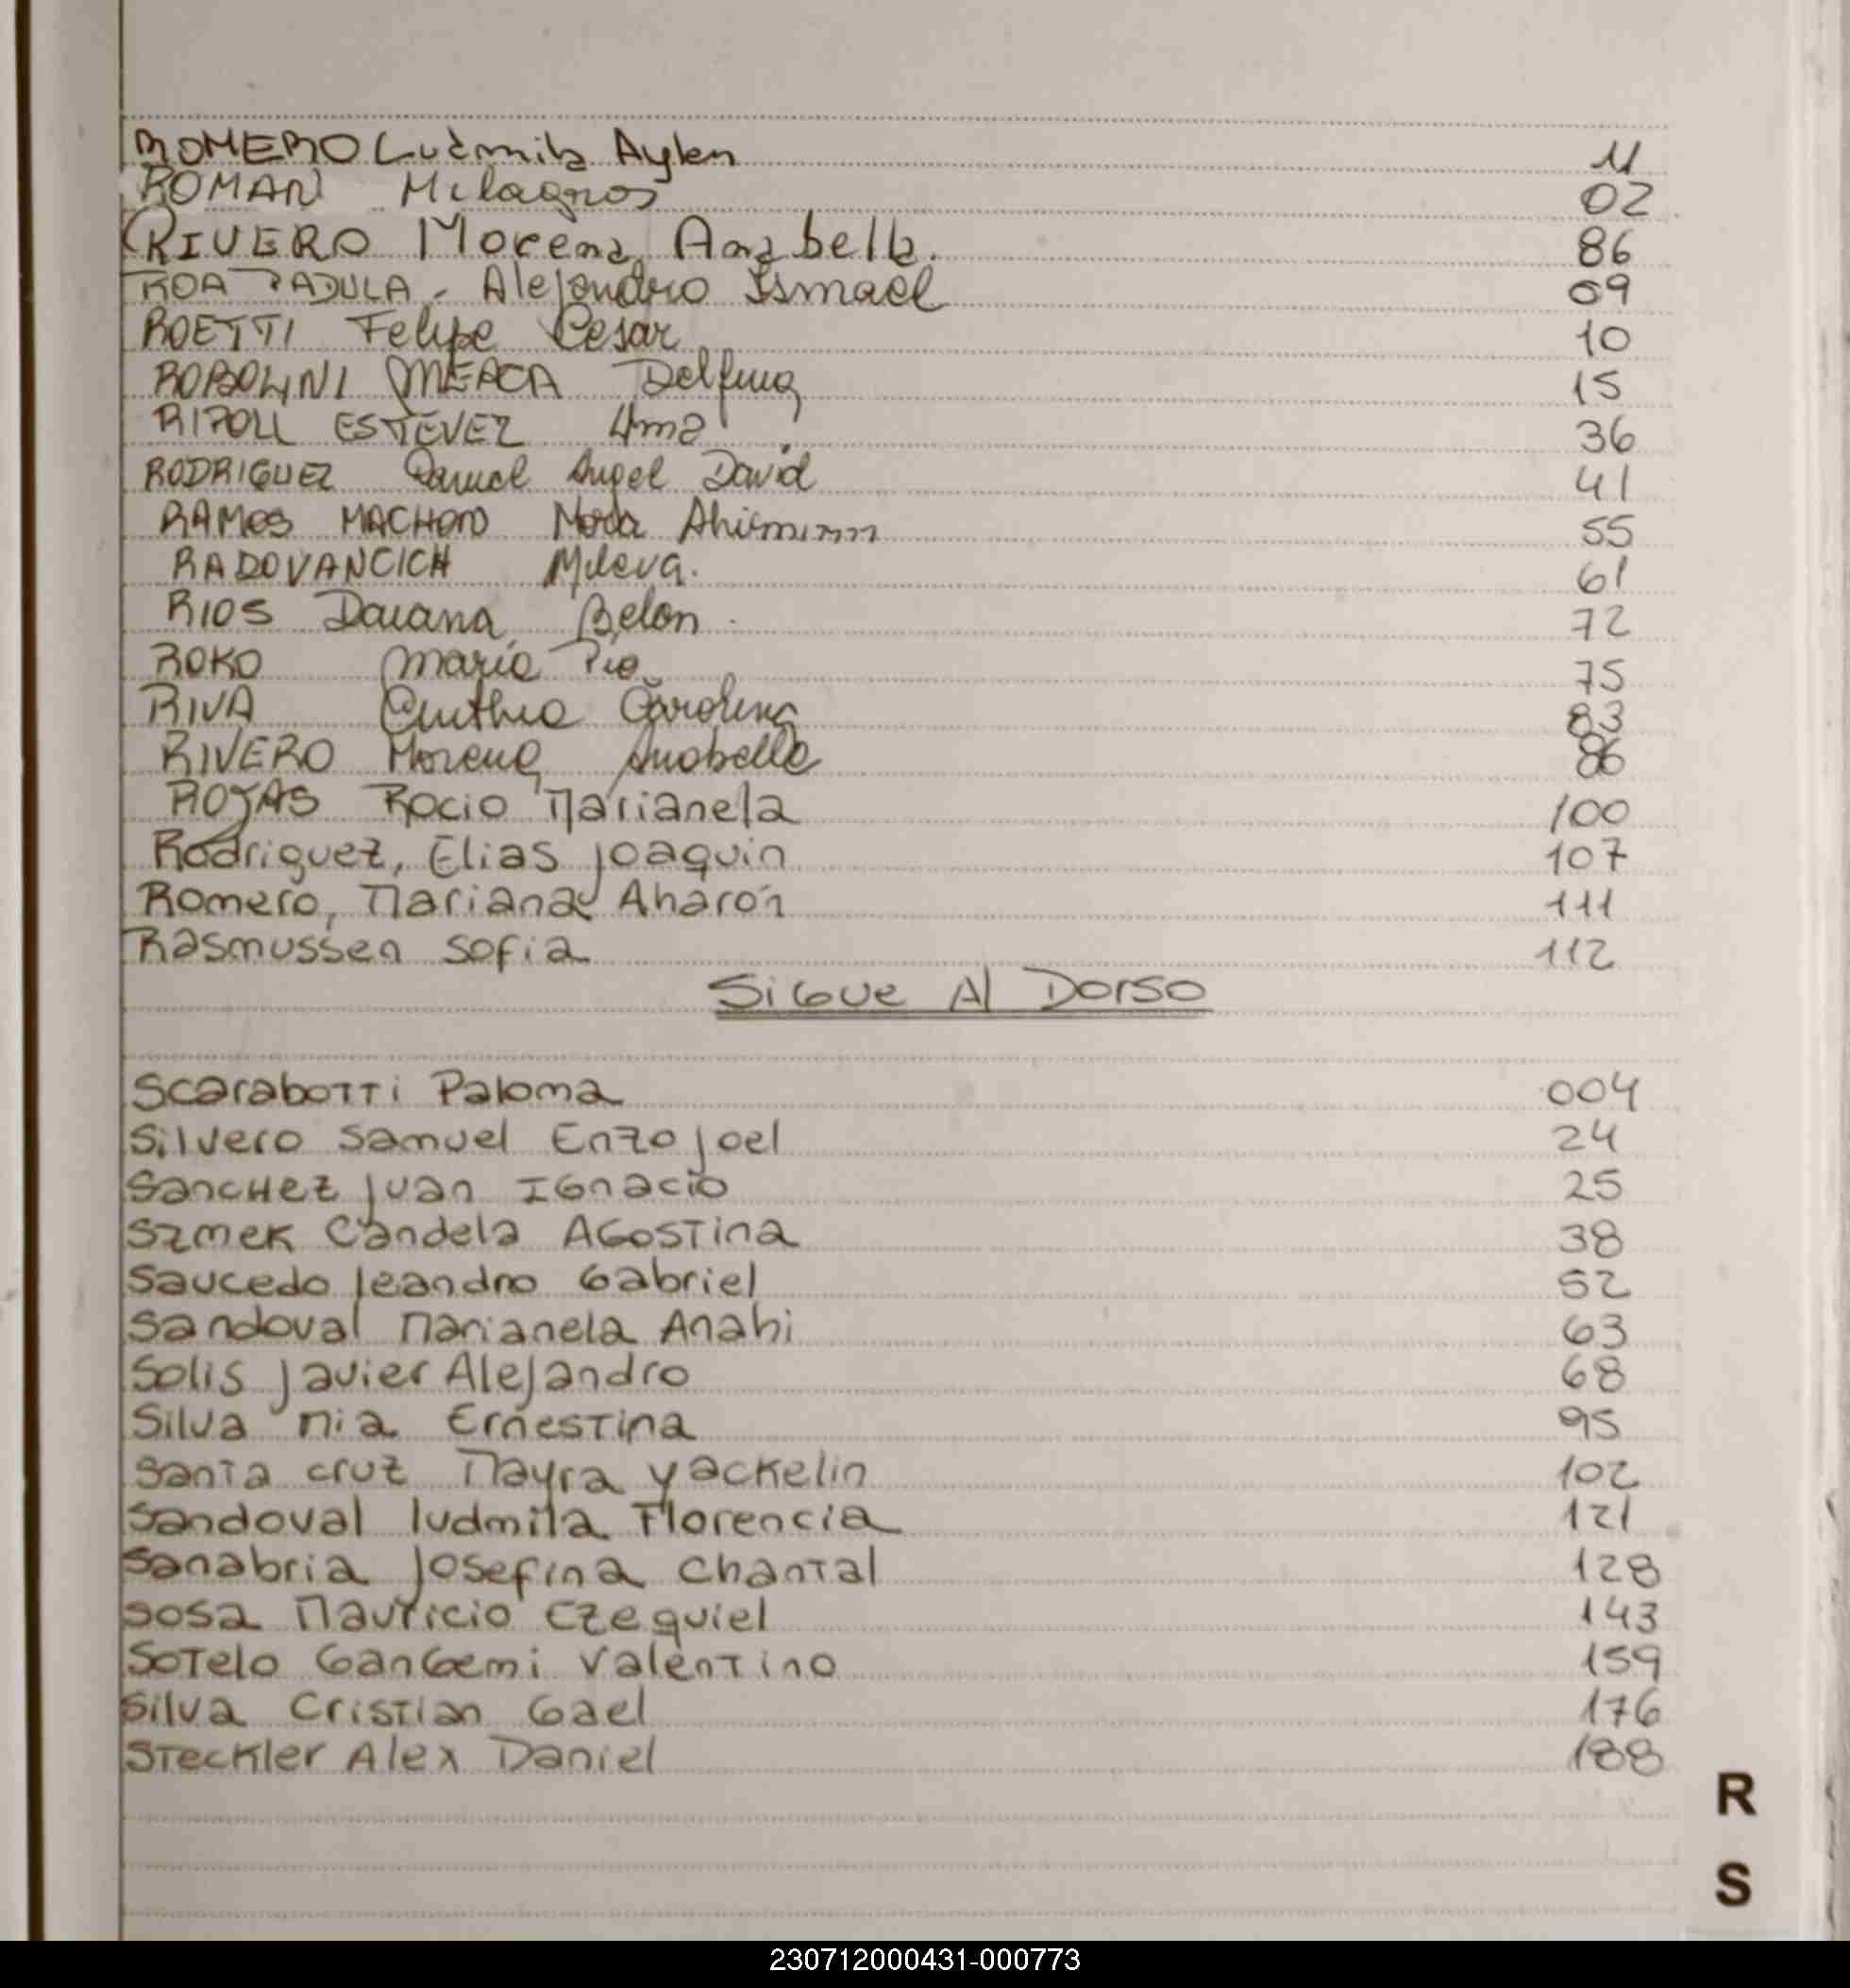 ROMERO Ludmila Aylen 11
ROMAN Milagros 02
RIVERO Morena Anabella. 86
ROA PADULA - Alejandro Ismael 09
ROETTI Felipe Cesar 10
ROBOLINI MEACA Delfina 15
RIPOLL ESTEVEZ Uma 36
RODRIGUEZ Daniel Angel David 41
RAMOS MACHADO 55
RADOVANCICH Mileva. 61
RIOS Daiana Belen 72
ROKO Maria Pia 75
RIVA Cinthia Carolina 83
RIVERO Morena Anabella 86
ROJAS Rocio Marianela 100
Rodriguez, Elias Joaquin 107
Romero, Mariana Aharón 111
Rasmussen Sofia 112
Sigue Al Dorso
Scarabotti Paloma 004
Silvero Samuel Enzo Joel 24
Sanchez Juan Ignacio 25
Szmek Candela Agostina 38
Saucedo Leandro Gabriel 52
Sandoval Marianela Anahi 63
Solis Javier Alejandro 68
Silva Mia Ernestina 95
Santa Cruz Mayra Yackelin 102
Sandoval Ludmila Florencia 121
Sanabria Josefina Chantal 128
Sosa Mauricio Ezequiel 143
Sotelo Gangemi Valentino 159
Silva Cristian Gael 176
Steckler Alex Daniel 188
R
S
230712000431-000773